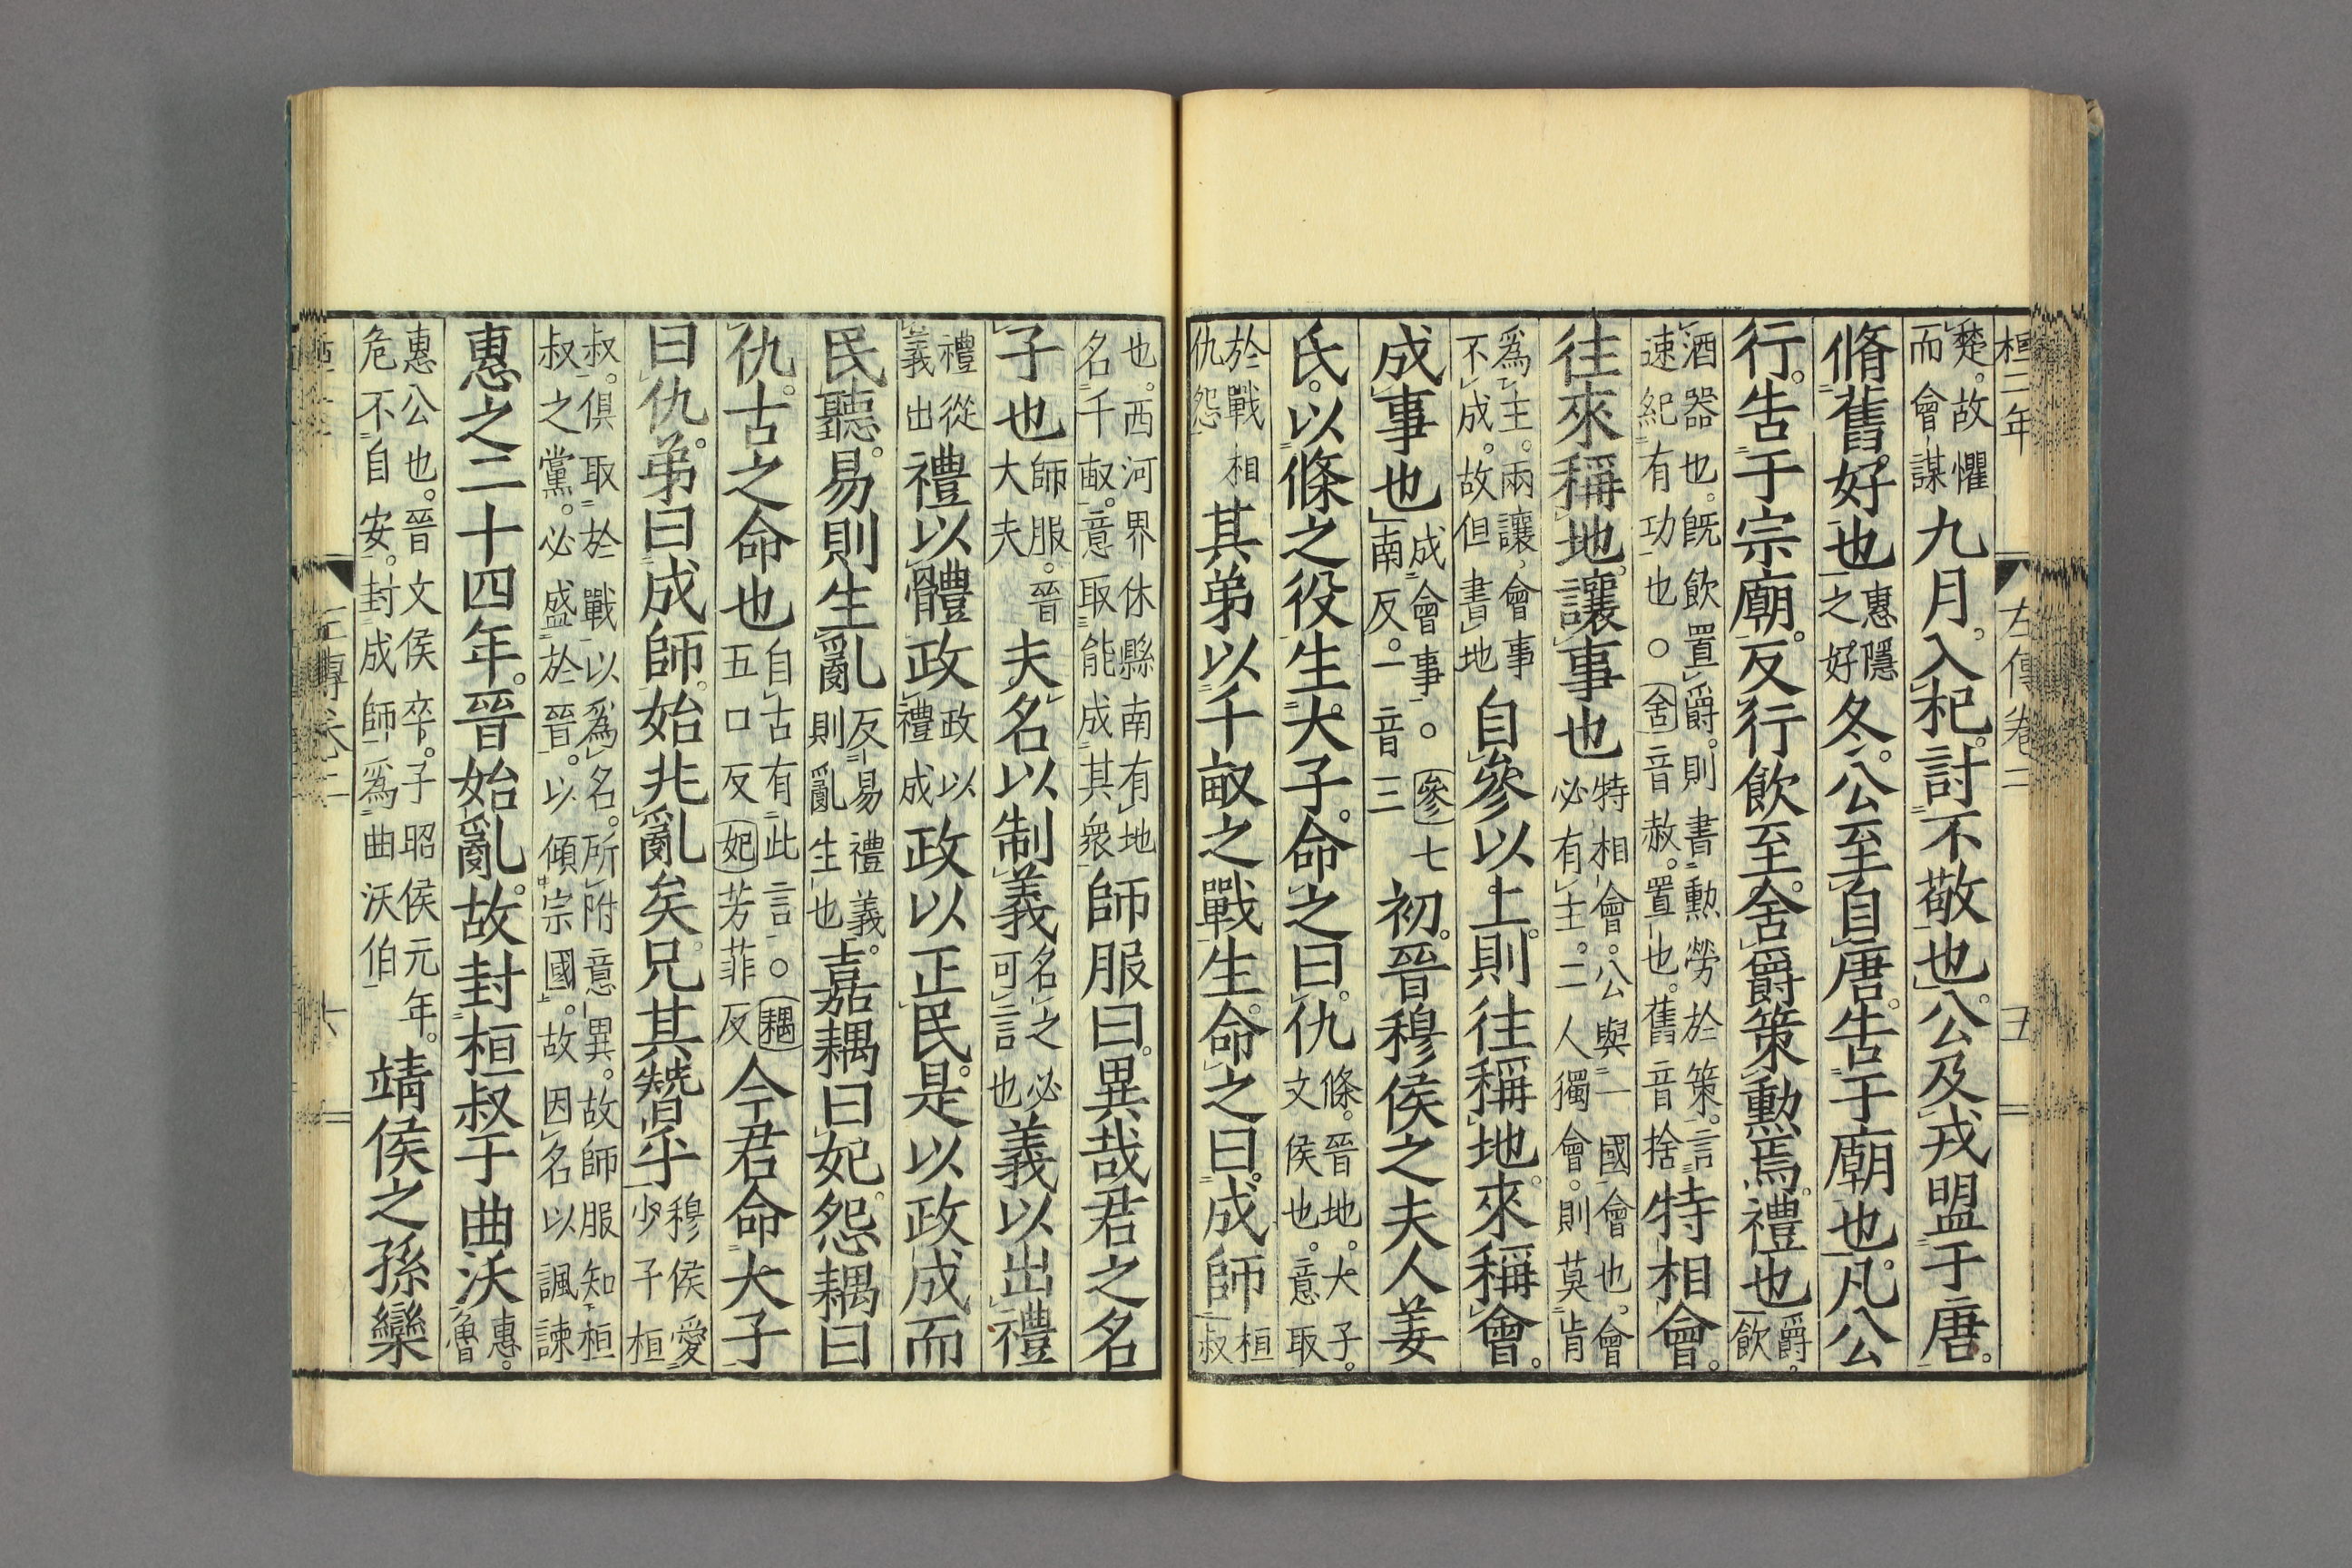 桓二年　左傳卷二　五
楚。故懼而會謀九月。入杞。討不敬也。公及戎盟于唐。
脩舊好也惠隱之好冬。公至自唐。告于廟也。凡公
行。告于宗廟。反行飲至。舍爵策勳焉。禮也爵。飲
酒器也。既飲置爵。則書勳勞於策。言速紀有功也○舍音赦。置也。舊音捨特相會。
往來稱地。讓事也特相會。公與一國會也。會必有主。二人獨會。則莫肯
爲主。兩讓會事不成。故但書地自參以上。則往稱地。來稱會。
成事也成會事○參七南反。一音三初。晉穆侯之夫人姜
氏。以條之役生大子。命之曰。仇條。晉地。大子。文侯也。意取
於戰相仇怨其弟以千畝之戰生。命之曰。成師桓叔
也。西河界休縣南有地名千畝。意取能成其衆師服曰。異哉君之名
子也師服。晉大夫夫名以制義名之必可言也義以出禮
禮從義出禮以體政政以禮成政以正民。是以政成而
民聽。易則生亂反易禮義。則亂生也嘉耦曰妃。怨耦曰
仇。古之命也自古有此言○耦五口反妃芳菲反今君命大子
曰仇。弟曰成師。始兆亂矣。兄其朁乎穆侯愛少子桓
叔。俱取於戰以爲名。所附意異。故師服知桓叔之黨。必盛於晉。以傾宗國。故因名以諷諫
惠之二十四年。晉始亂。故封桓叔于曲沃惠。魯
惠公也。晉文侯卒。子昭侯元年。危不自安。封成師爲曲沃伯靖侯之孫欒